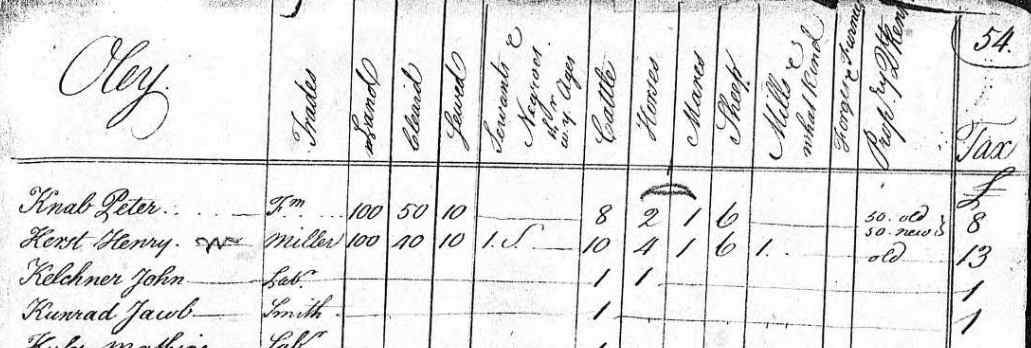 54.
Oley.
Trades Land Cleard Sowed Servants & Negroes Sex w.y. Ages Cattle Horses Mares Sheep Mills & what Kind Forges & Furnac Prop.ry Tax
£
Knab Peter Fm 100 50 10 8 2 1 6 50. old 50. new 8
Kerst Henry. Miller 100 40 10 1. S. 10 4 1 6 1. old 13
Kelchner John Lab. 1 1 1
Kunrad Jacob Smith 1 1
Mathias Labr